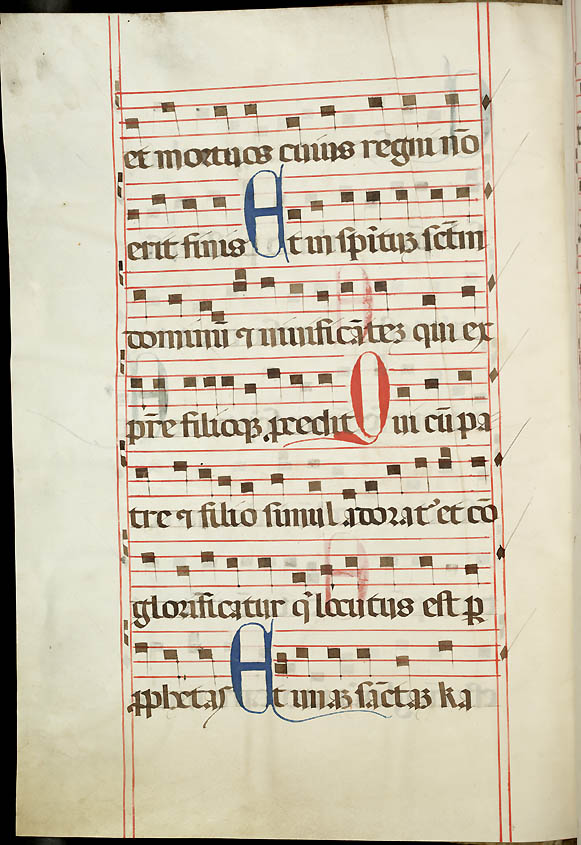 et mortuos cuius regni nō
erit finis Et in spīritūȝ sctm̄
dominū ⁊ uiuificātēȝ qui ex
pr̄e filioqȝ procedit Qui cū pa
tre ⁊ filio simul adorat᷑ et cō
glorificatur qͥ locutus est ꝑ
prophetas Et unaȝ sāctaȝ ka